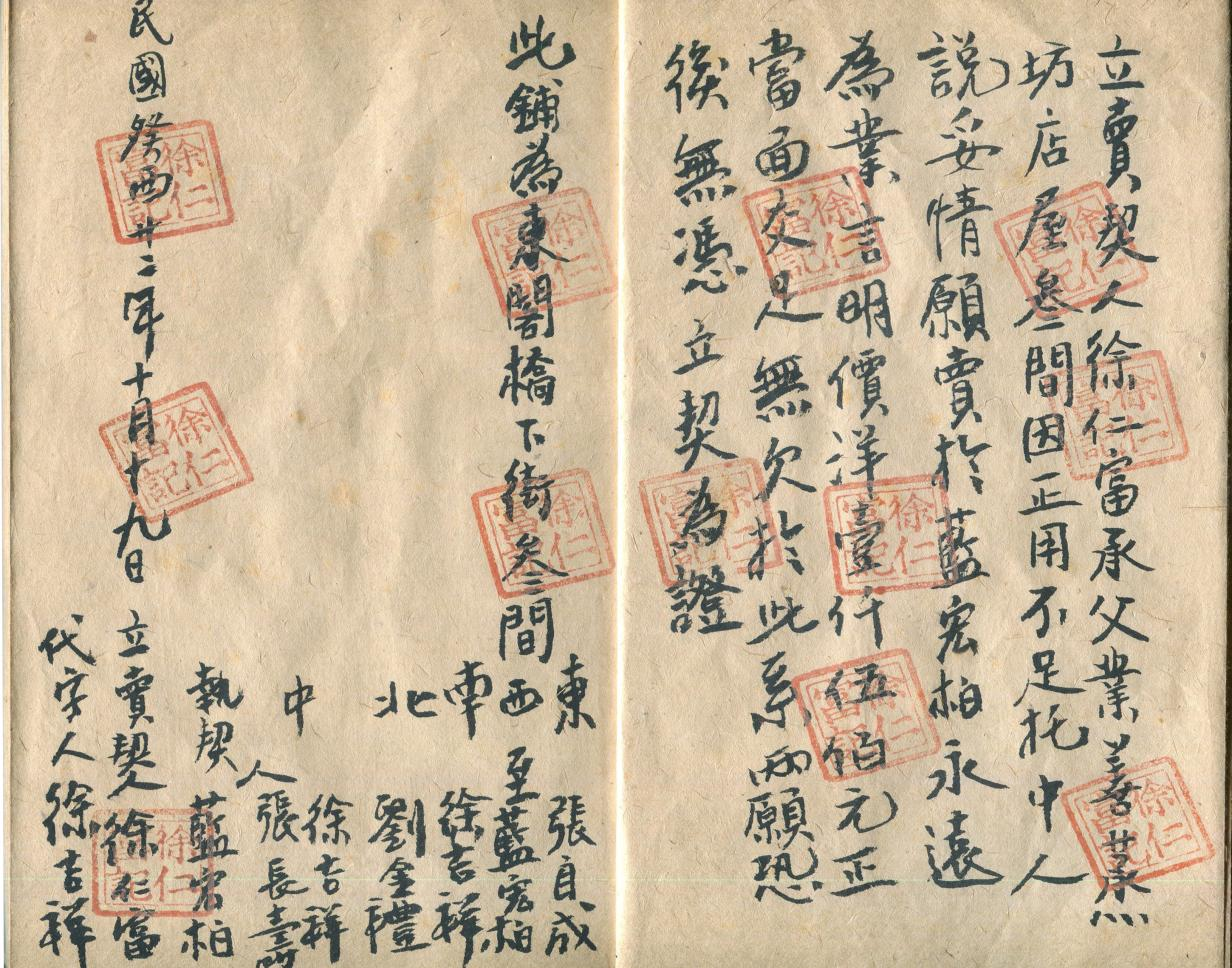 立賣契人徐仁富承父業善葉
坊店屋叁間因正用不足托中人
説妥情願賣於藍宏柏永遠
為業言明價洋壹仟伍佰元正
當面交足無欠於此系兩願恐
後無憑立契為證
此鋪為東閣橋下街叁間
東 張自成
西至藍宏柏
南 徐吉祥
北 劉金禮
中 徐吉祥
人 張長壽
執契 藍宏柏
民國癸酉廿二年十月十九日 立賣契人徐仁富
代字人徐吉祥
徐仁富記
徐仁富記
徐仁富記
徐仁富記
徐仁富記
徐仁富記
徐仁富記
徐仁富記
徐仁富記
徐仁富記
徐仁富記
徐仁富記